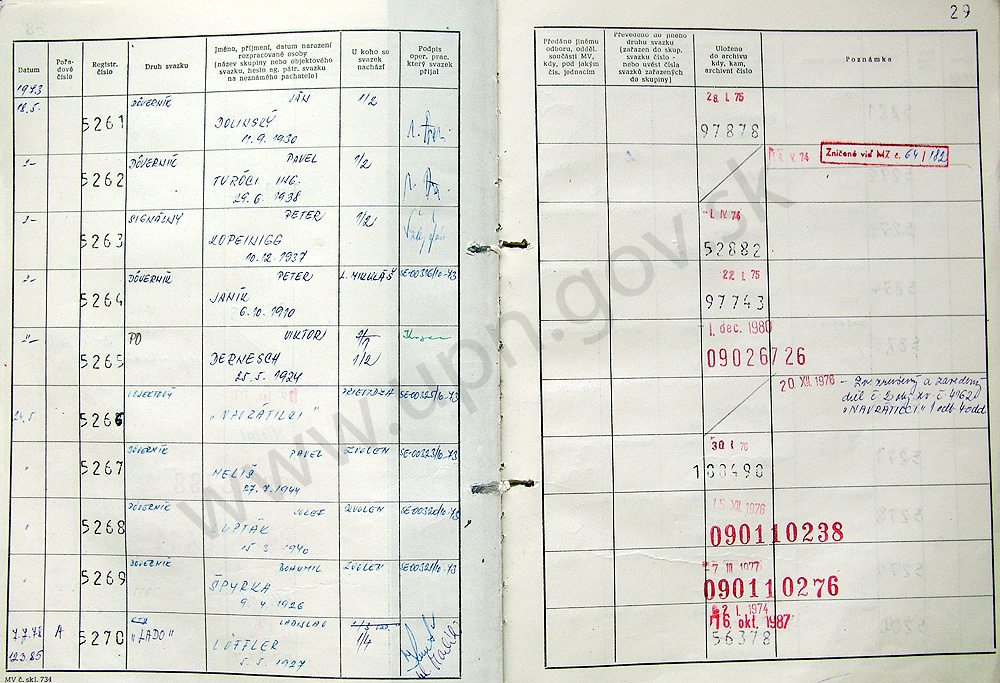 29
Datum
Pořa-
dové
číslo
Registr.
číslo
Druh svazku
Jméno, příjmení, datum narození
rozpracované osoby
(název skupiny nebo objektového
svazku, heslo ag. pátr. svazku
na neznámého pachatele)
U koho se
svazek
nachází
Podpis
oper. prac.
který svazek
přijal
Předáno jinému
odboru, odděl.
součásti MV,
kdy, pod jakým
čís. jednacím
Převedeno do jiného
druhu svazku
(zařazen do skup.
svazku číslo -
nebo uvést čísla
svazků zařazených
do skupiny)
Uloženo
do archivu
kdy, kam,
archivní číslo
Poznámka
1973
18.5.
5261
DÔVERNÍK
JÁN
DOLINSKÝ
11.9.1930
1/2
28 I. 75
97878
5262
DÔVERNÍK
PAVEL
TURÓCI ING.
29.6.1938
1/2
V 74
Zničené viď MZ č. 64/182
5263
SIGNÁLNY
PETER
KOPEINIGG
10.12.1937
1/2
IV 74
52882
5264
DÔVERNÍK
PETER
JANÍK
6.10.1910
L. MIKULÁŠ
SE-00326/10-73
22 I. 75
97743
5265
PO
VIKTOR
DERNESCH
25.5.1924
1/2
1. dec. 1980
09026726
5266
OBJEKTOVÝ
„NAVRATILCI"
PRIEVIDZA
SE-00325/10-73
20 XII. 1976
5267
DÔVERNÍK
PAVEL
MELIŠ
27.7.1944
ZVOLEN
SE-00323/10-73
30 I 76
100490
5268
DÔVERNÍK
JOZEF
LUPTÁK
15.3.1940
ZVOLEN
SE-00320/10-73
15. XII. 1976
090110238
5269
DÔVERNÍK
BOHUMIL
ŠPYRKA
9.4.1926
ZVOLEN
SE-00321/10-73
7 III. 1977
090110276
7.7.78
12.3.85
A
5270
„LADO"
LADISLAV
LÖFFLER
5.5.1927
1/4
2 I. 1974
16. okt. 1987
56378
MV č. skl. 734
www.upn.gov.sk